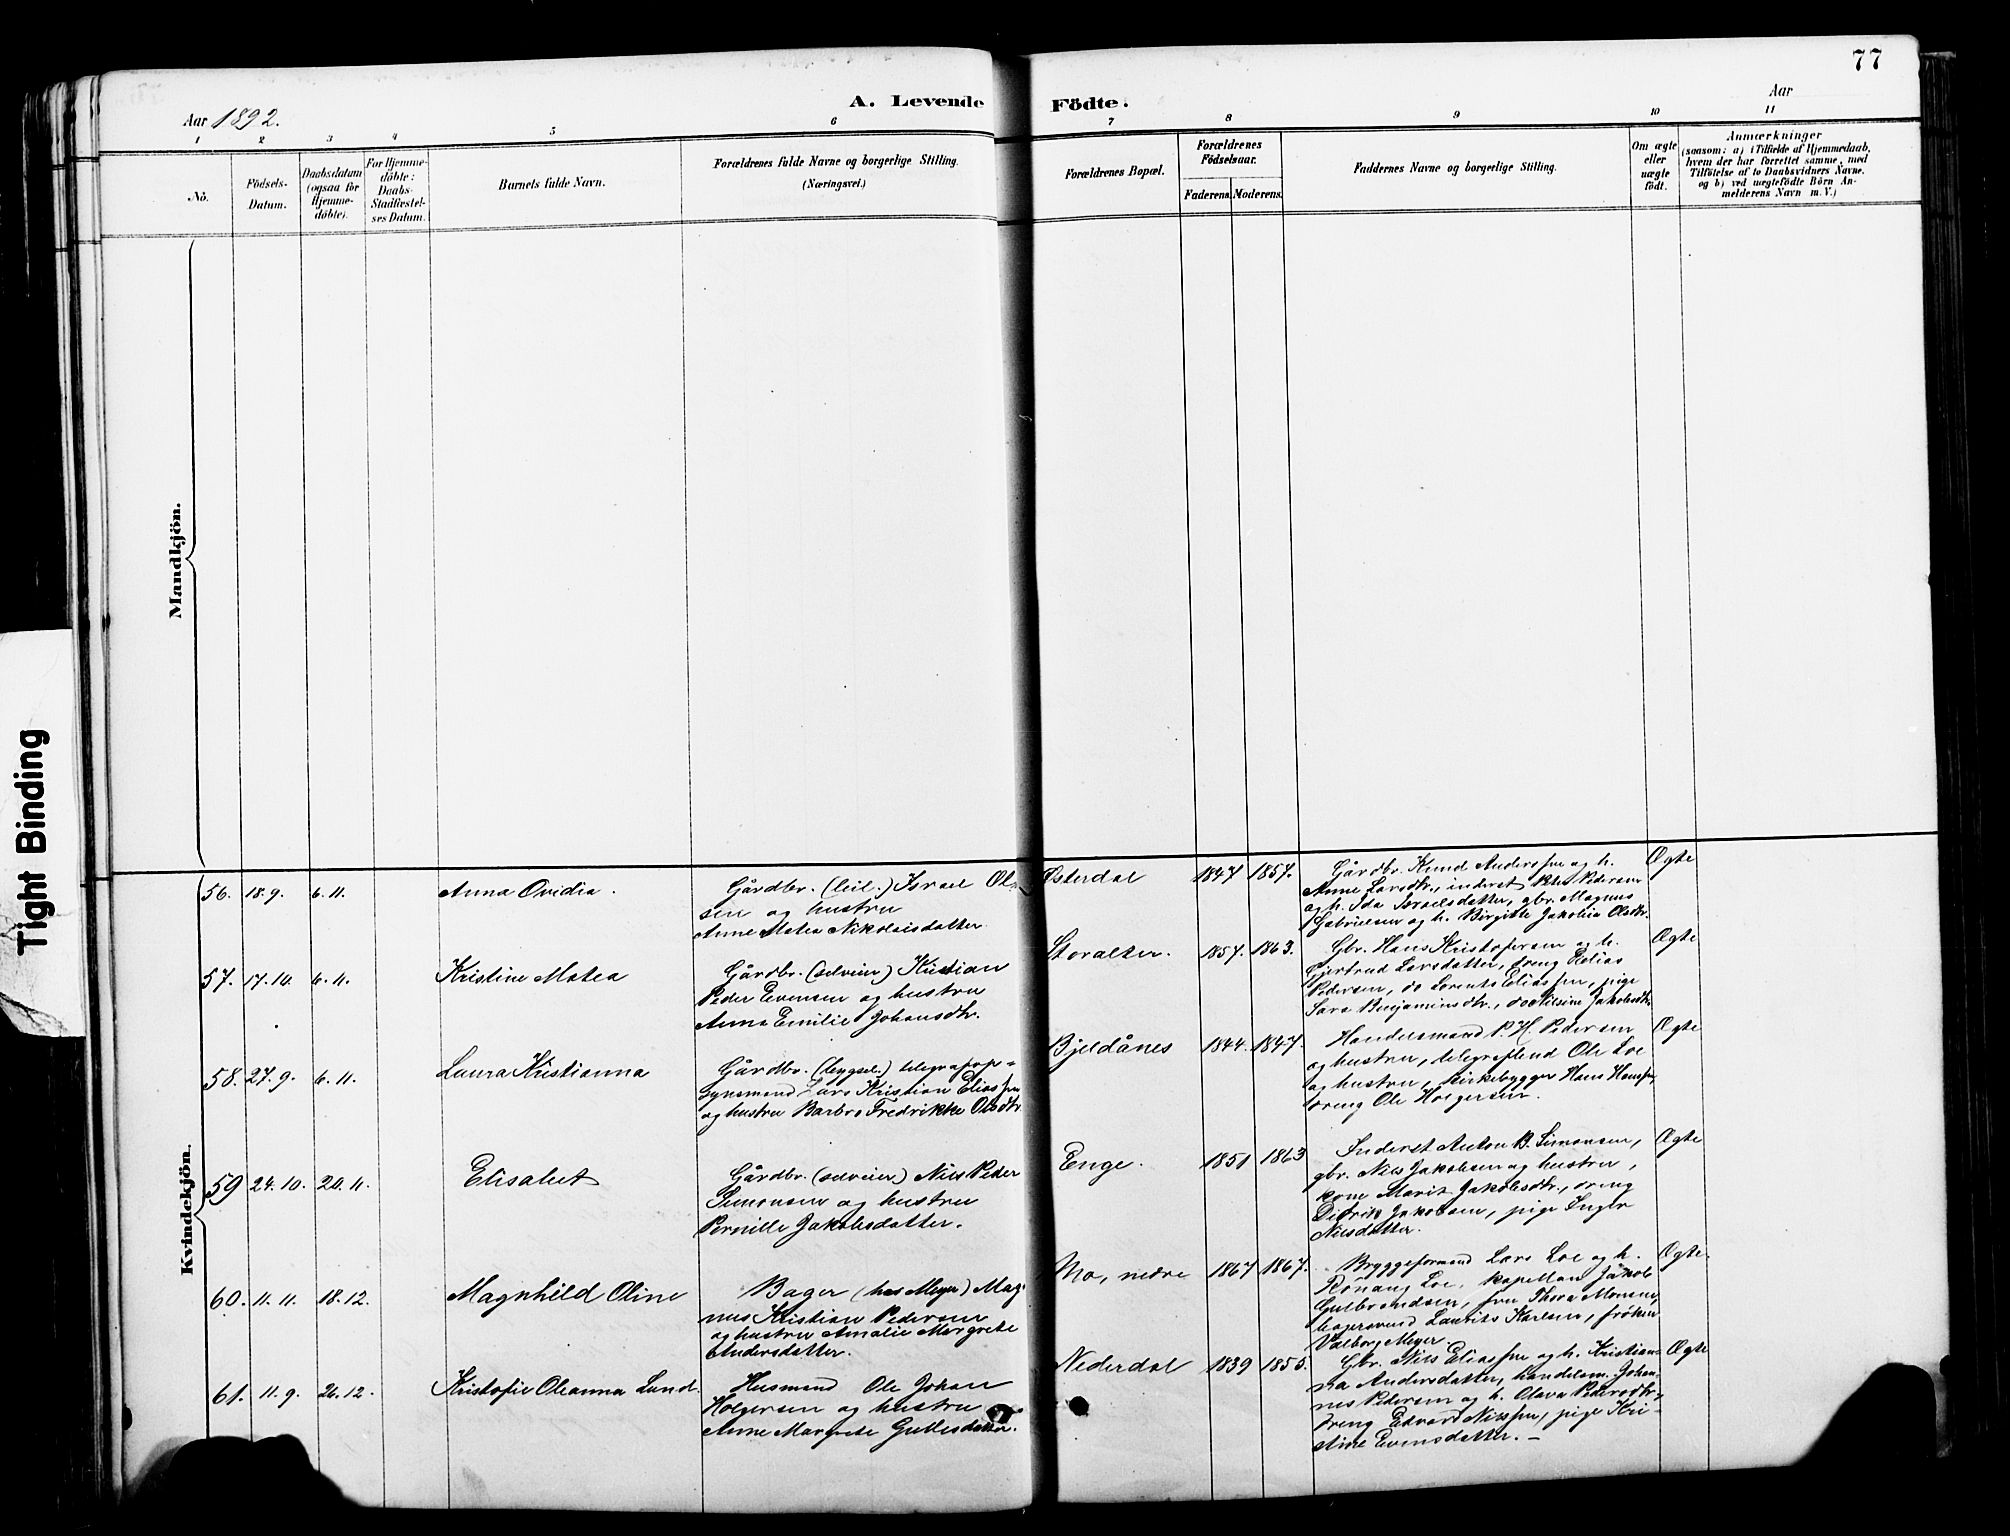 77
Aar 1892.
A. Levende Födte.
Aar
1 2 3 4 5 6 7 8 9 10 11
No.
Födsels-
Datum.
Daabsdatum
(ogsaa for
Hjemme-
döbte).
For Hjemme-
döbte:
Daabs-
Stadfæstel-
ses Datum.
Barnets fulde Navn.
Forældrenes fulde Navne og borgerlige Stilling.
(Næringsvei.)
Forældrenes Bopæl.
Forældrenes
Födselsaar.
Faderens. Moderens.
Faddernes Navne og borgerlige Stilling.
Om ægte
eller
uægte
födt.
Anmærkninger
(saasom: a) i Tilfælde af Hjemmedaab,
hvem der har forrettet samme, med
Tilföielse af to Daabsvidners Navne,
og b) ved uægtefödte Börn An-
melderens Navn m. V.)
Mandkjön.
Tight Binding
Kvindekjön.
56. 18.9. 6.11. Anna Ovidia.
Gårdbr. (leil.) Israel Ol-
sen og hustru
Anne Matea Nikolaisdatter.
Østerdal 1847 1857.
Gårdbr. Knud Anderssen og h.
Anne Larsdtr., inderst Peder Pedersen
og h. Ida Israelsdatter, gbr. Magnus
Gabrielsen og h. Birgitte Jakobia Olsdtr.
Ægte
57. 17.10. 6.11. Kristine Matea
Gårdbr. (selveier) Kristian
Peder Evensen og hustru
Anna Emilie Johansdtr.
Storalteren. 1857. 1863.
Gbr. Hans Kristofersen og h.
Gjertrud Larsdatter, dreng Elias
Pedersen, do Lorents Eliassen, pige
Sara Benjaminsdtr., do Nilsine Jakobsdtr.
Ægte
58. 27.9. 6.11. Laura Kristianna
Gårdbr. (bygsel.) telegrafop-
synsmand Lars Kristian Eliassen
og hustru Barbro Fredrikke Olsdtr.
Bjeldånes 1844. 1847.
Handelsmand P. H. Pedersen
og hustru, telegrafbud Ole Loe
og hustru, kirkebygger Hans Hansen,
dreng Ole Holgersen.
Ægte
59 24.10. 20.11. Elisabet
Gårdbr. (selveier) Nils Peder
Simonsen og hustru
Pernille Jakobsdatter.
Enge. 1851 1863
Inderst Anton B. Simonsen,
gbr. Nils Jakobsen og hustru,
kone Marit Jakobsdtr., dreng
Didrik Jakobsen, pige Inger
Nilsdatter.
Ægte
60. 11.11. 18.12. Magnhild Oline
Bager (hos Meyer) Mag-
nus Kristian Pedersen
og hustru Amalie Margrete
Andersdatter.
Mo, nedre 1867 1867.
Bryggeformand Lars Loe og h.
Rönaug Loe, kapellan Jakob
Gulbrandsen, fru Thora Monsen,
bagersvend Laurits Karlsen, fröken
Valborg Meyer.
Ægte.
61. 11.9. 26.12. Kristofie Oleanna Lund.
Husmand Ole Johan
Holgersen og hustru
Anne Margrete Gullesdatter.
Nederdal 1839 1855.
Gbr. Nils Eliassen og h. Kristian-
na Andersdatter, handelsm. Johan-
nes Pedersen og h. Olava Pedersdtr.,
dreng Edvard Nilssen, pige Kri-
stine Evensdatter. –
Ægte